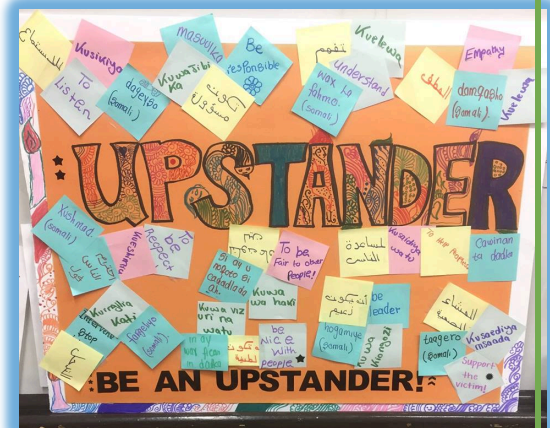 للاستماع
Kusikiya
To
Listen
dageyso
(Somali)
masuulka
Kuwajibi
ka
تكون
مسؤول
Be
responsible
تفهم
Kuelewa
understand
wax la
fahmo.
(Somali)
Empathy
damqasho
(Somali).
Kuelewa
UPSTANDER
Xushmad
(Somali)
Kueshimu
To
be
Respect
To be
Fair to other
People!
si ay u
noloto si
cadaalada
ah.
Kuwa
wa haki
لمساعدة
الناس
Kusaidia
watu
To Help People
Caawinan
ta dadka
Kuingilia
Kati
Intervene
Stop
faragelinta
(Somali)
Kuwa viz
uri na
watu
be
Nice
With
people
be
leader
hogaamiye
(Somali)
Kuwa
Kiongozi
taagero
(Somali)
Kusaidiya
msaada
Support
the
victim!
BE AN UPSTANDER!